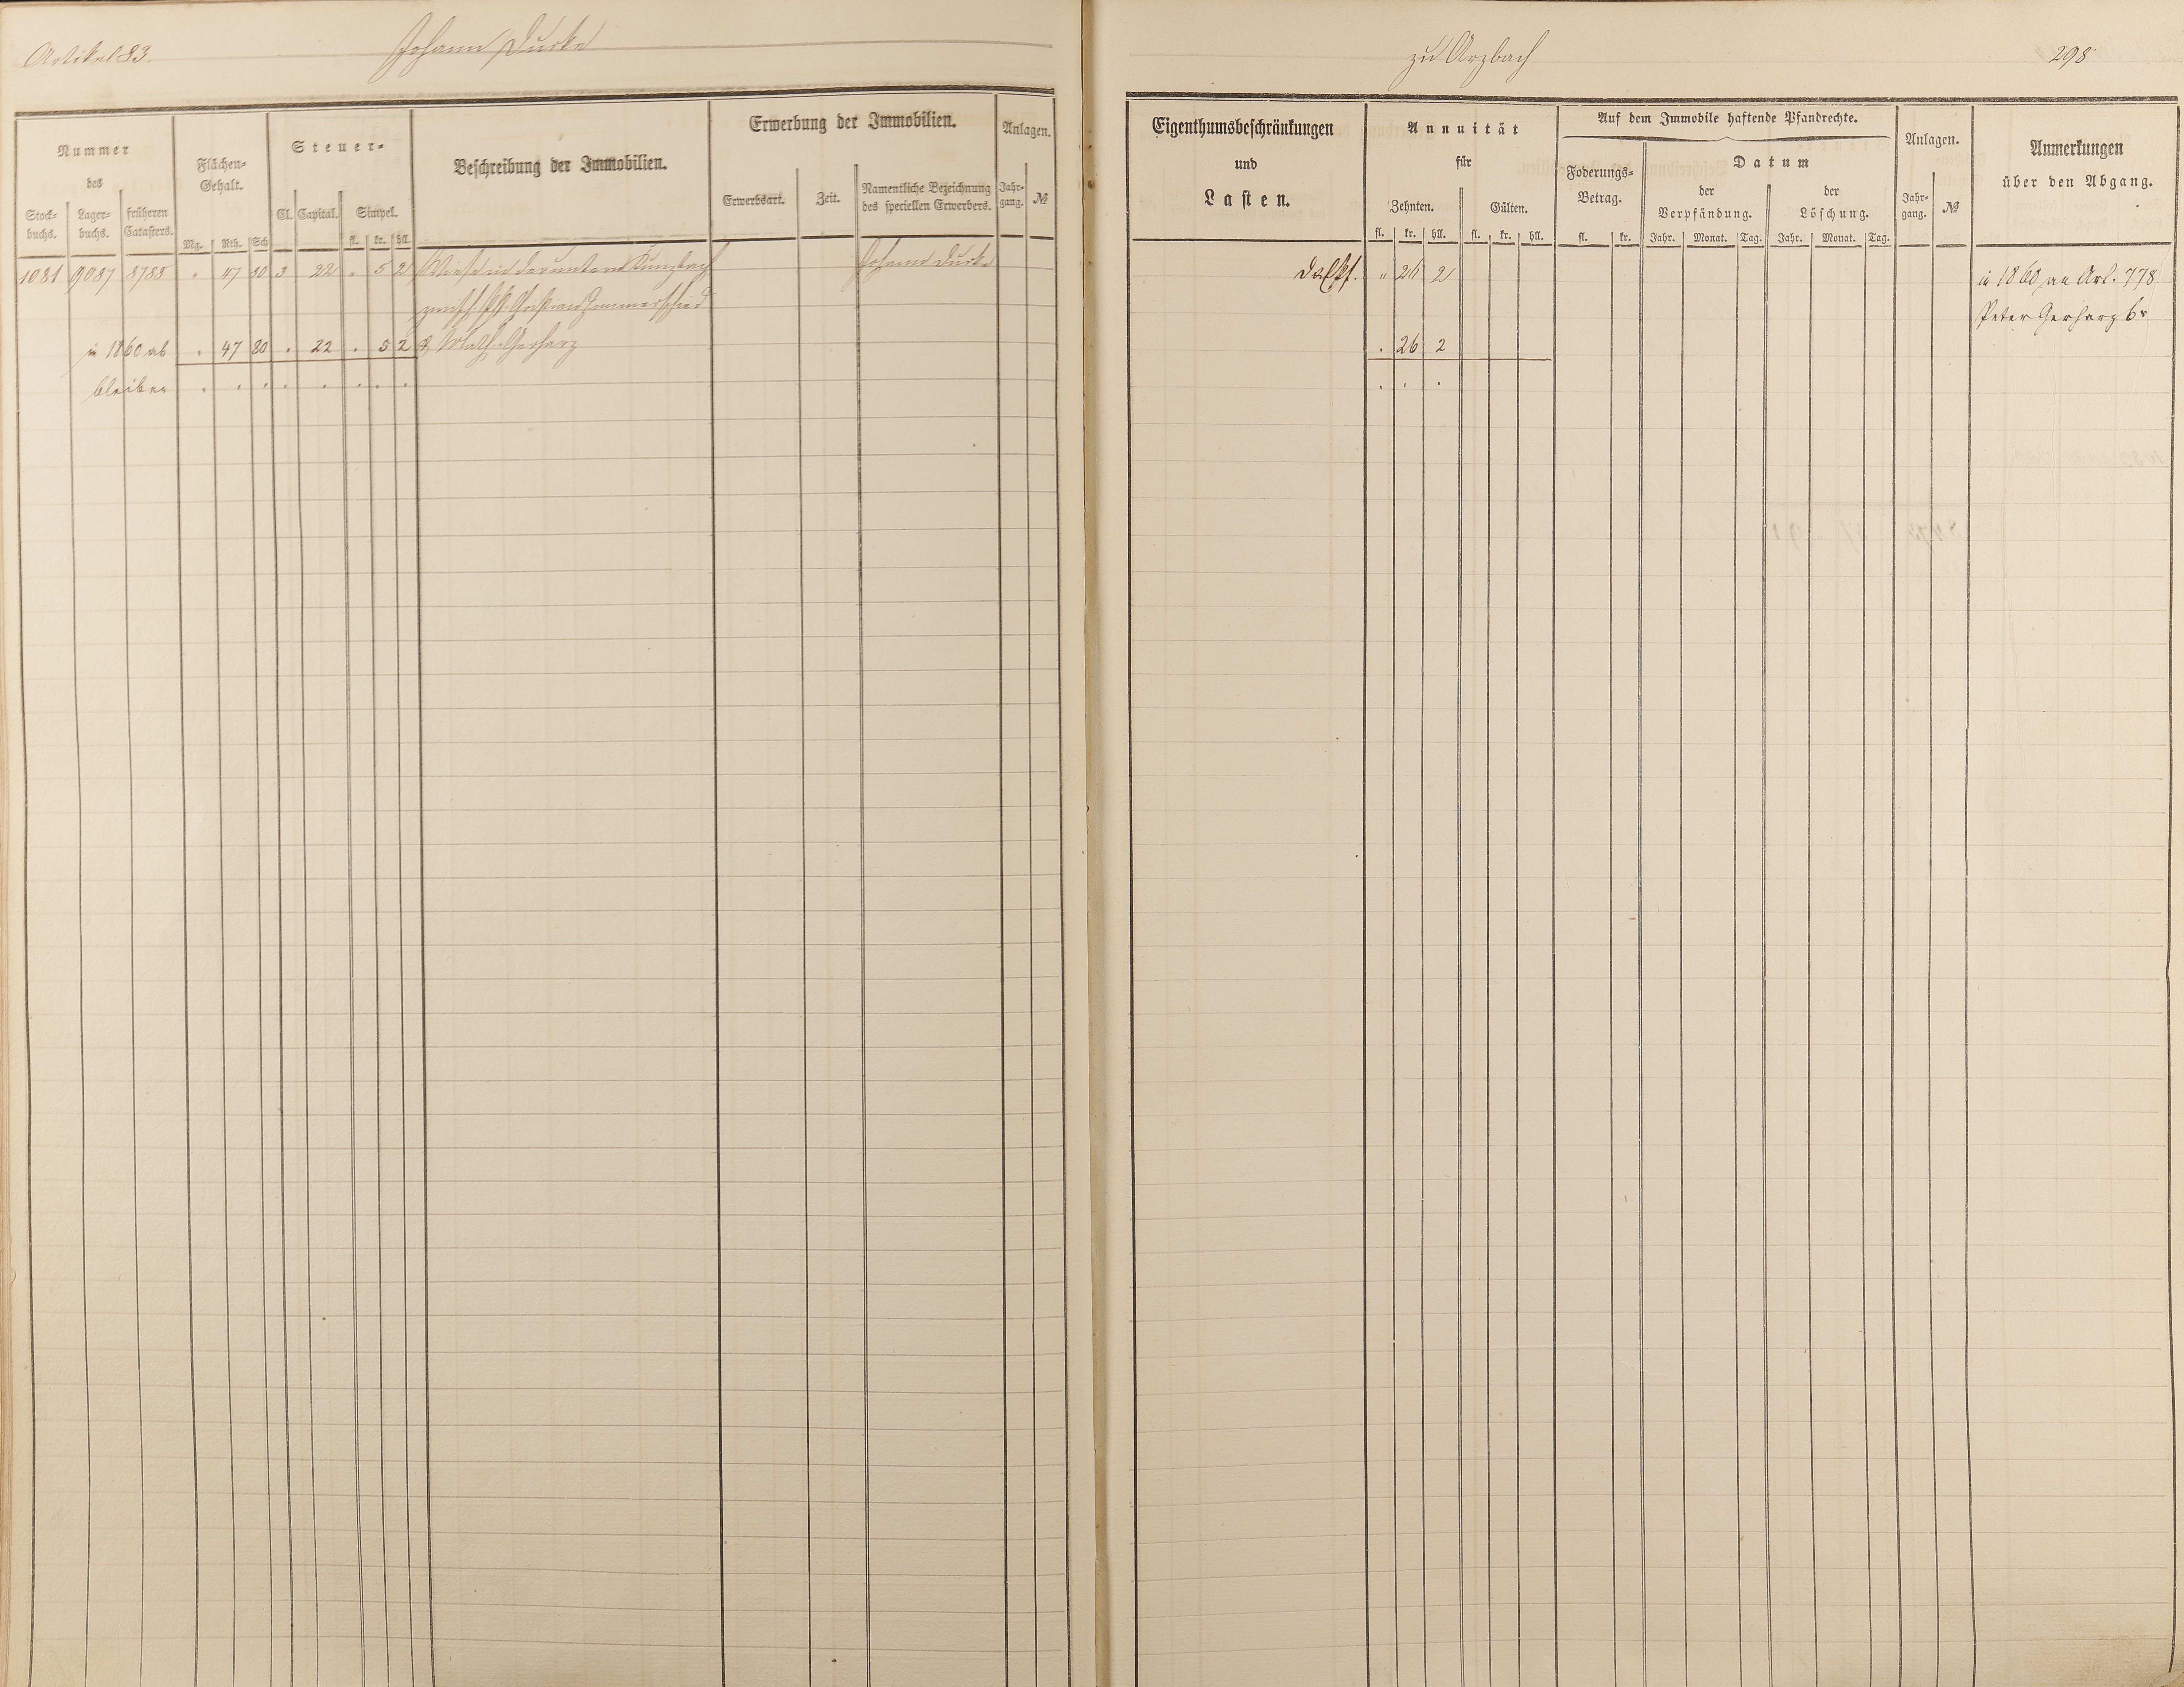 Artikel 83.
Johann Duike
zu Arzbach
298
Nummer
des
Stock-
buchs.
Lager-
buchs.
früheren
Catasters.
Flächen-
Gehalt.
Mg. Rth. Sch
Steuer-
Cl. Capital. Simpel.
fl. kr. hll.
Beschreibung der Immobilien.
Erwerbung der Immobilien.
Erwerbsart. Zeit.
Namentliche Bezeichnung
des speciellen Erwerbers.
Anlagen.
Jahr-
gang. №
1081 9087 8788 " 47 80 3 22 " 5 2 Wiese in der untern Kunzbach Johann Duike
zwisch Zimmerschied
in 1860 ab . 47 80 . 22 . 5 2 & Math. Gerharz
bleiben . . . . . . . .
Eigenthumsbeschränkungen
und
Lasten.
Annuität
für
Zehnten. Gülten.
fl. kr. hll. fl. kr. hll.
Auf dem Immobile haftende Pfandrechte.
Foderungs-
Betrag.
fl. kr.
Datum
der
Verpfändung.
der
Löschung.
Jahr. Monat. Tag. Jahr. Monat. Tag.
Anlagen.
Jahr-
gang. №
Anmerkungen
über den Abgang.
" 26 2 in 1860 an Art. 778
Peter Gerharz 6r
. 26 2
. . .